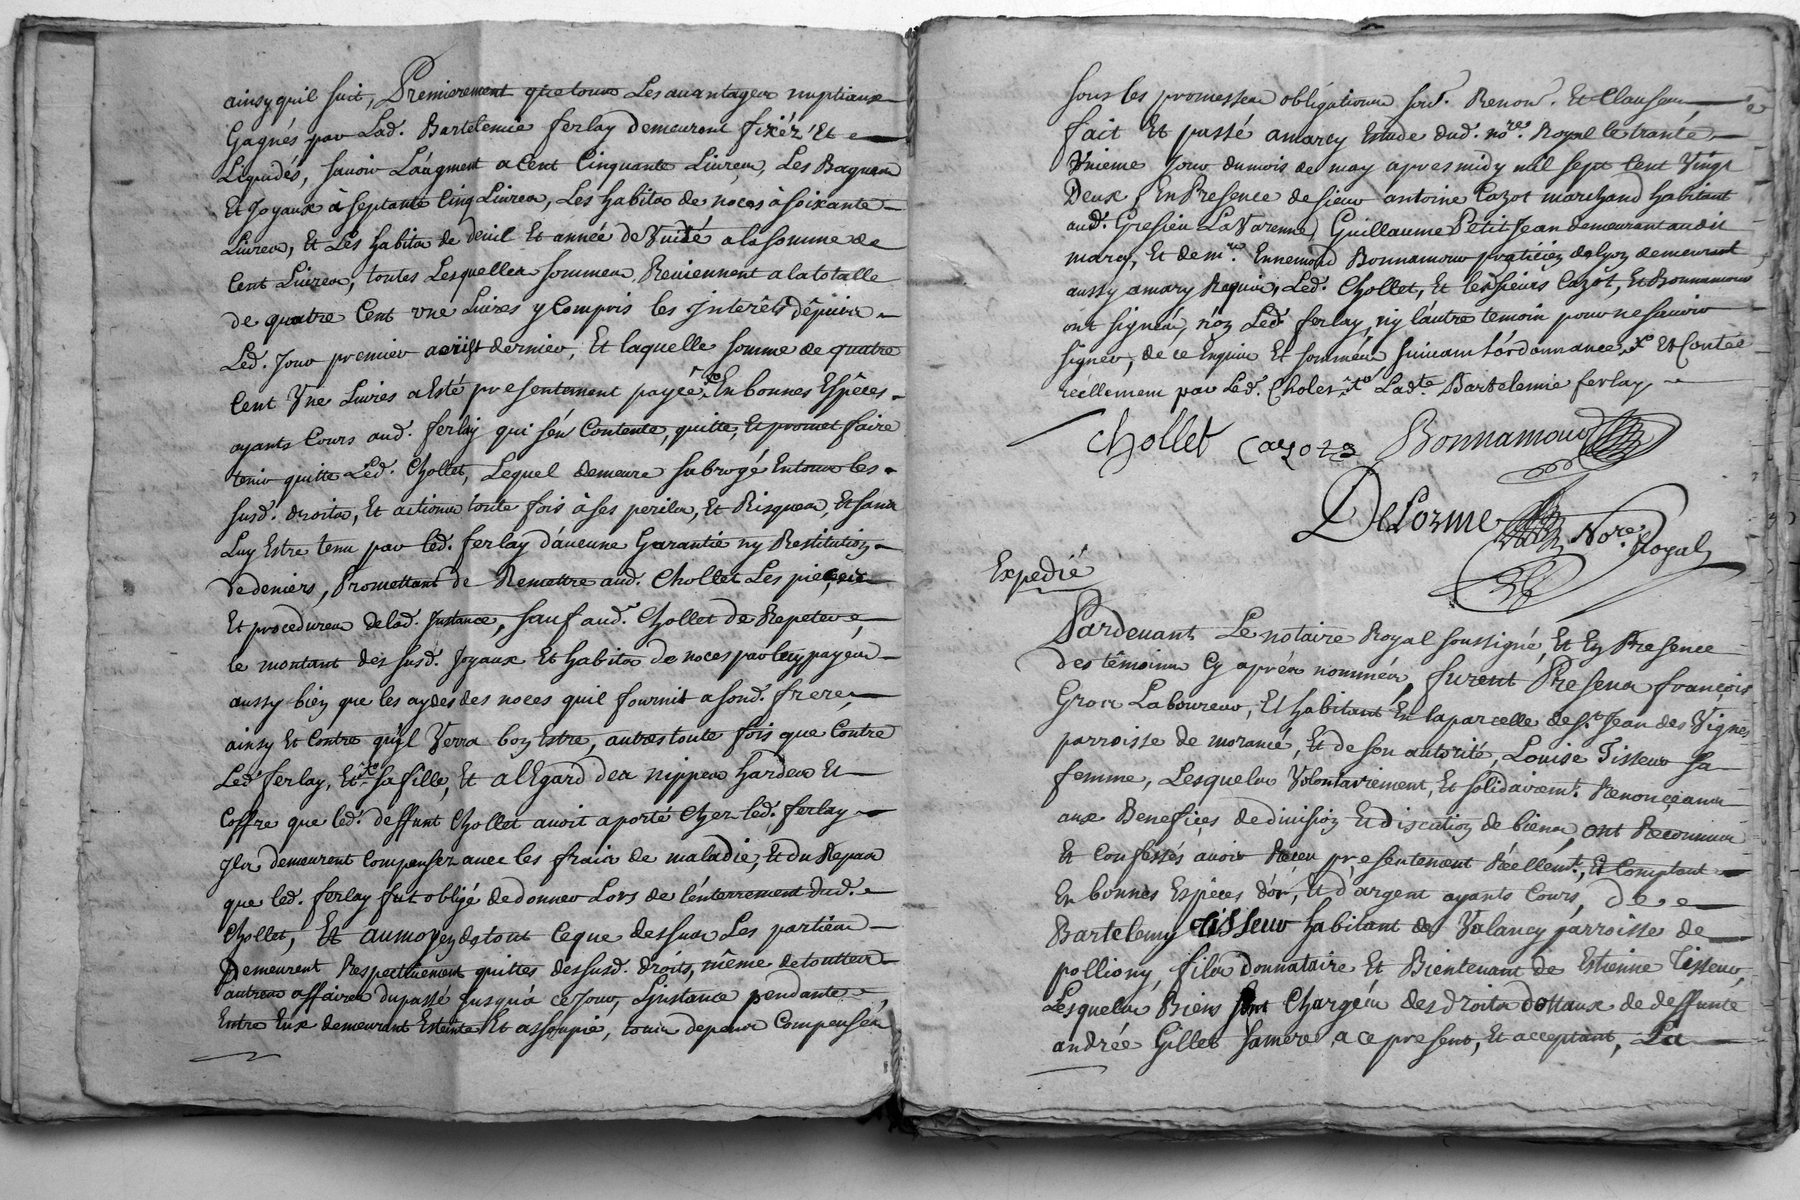 ainsy quil suit, Premierement que tous Les avantages nuptiaux
Gagnés par Lad. Bartelemie ferlay demeuront fixéz Et
Liquidés, savoir Laugment a Cent Cinquante Livres, Les Bagues
Et Joyaux à septante Cinq Livres, Les habits de noces à soixante
Livres, Et Les habits de deuil Et année de Vuide a la somme de
Cent Livres, toutes Lesquelles sommes Reviennent a la totalle
de quatre Cent une Livres y Compris les Interêts depuis
Led. Jour premier dernier, Et laquelle somme de quatre
Cent Une Livres a Esté presentement payée En bonnes Espêces
ayants Cours aud. ferlay qui s'en Contente, quitte, Et promet faire
tenir quitte Led. Chollet, Lequel demeure subrogé En tous les
susd. droits, Et actions toute fois à ses perils, Et Risques, Et sans
Luy Estre tenu par led. ferlay d'aucune Garantie ny Restitution
de deniers, Promettant de Remettre aud. Chollet Les pieces
Et procedures de lad. Instance, sauf aud. Chollet de Repeter
le montant des susd. Joyaux Et habits de noces par luy payer
aussy bien que les aydes des noces quil fournit a sond. frere,
ainsy Et Contre qu'il Verra bon Estre, autres toute fois que Contre
Led. ferlay, Et sa fille, Et a l'Egard des nippes hardes Et
Coffre que led. deffunt Chollet avoit aporté Chez led. ferlay
Ils demeurent Compensez avec les frais de maladie, Et du Repas
que led. ferlay fut obligé de donner Lors de l'enterrement dud.
Chollet, Et au moyen de tout Ce que dessus Les parties
Demeurent Respectivement quittes des susd. droits, même de touttes
autres affaires du passé Jusqu'à ce Jour, L'instance pendante
Entre Eux demeurant Esteinte Et assoupie, tous depens Compensés
sous les promesses obligations soû. Renon. Et Clauses,
fait Et passé a marcy Estude dud. nore. Royal le trante
Unieme Jour du mois de may apres midy mil sept Cent Vingt
Deux, En Presence de sieur antoine Cazot marchand habitant
aud. Gresieu La Varenne, Guillaume Petit Jean demeurant audit
marcy, Et de mre. Ennemond Bonnamour praticien de Lyon demeurant
aussy a marcy Requis, Led. Chollet, Et lesd. sieurs Cazôt, Et Bonnamour
ont signéz, non Led. ferlay, ny l'autre temoin pour ne sçavoir
signer, de ce Enquis Et sommés suivant L'ordonnance, Et Contée
réellement par Led. Cholet Lad.te Bartelemie ferlay
Chollet Cazot Bonnamour
DeLorme Nore. Royal
Expedié
Pardevant Le notaire Royal soussigné, Et En Presence
des têmoins Cy aprés nommés, furent Presens françois
Gros Laboureur, Et habitant En la parcelle de St. Jean des Vignes
parroisse de morancé, Et de son autorité, Louise Tisseur sa
femme, Lesquels Volontairement, Et solidairemt. Renonçeans
aux Benefices de division Et discution de biens, ont Reconnus
Et Confessés avoir Receu presentement Réellemt., Et Comptant
En bonnes Espêces d'or, Et d'argent ayants Cours, de
Bartelemy Tisseur habitant de Valancy parroisse de
pollieny, fils donnataire Et Bientenant de Estienne Tisseur,
Lesquels Biens sont Chargés des droits dottaux de deffunte
andrée Gillet sa mere, a ce present, Et acceptant, La